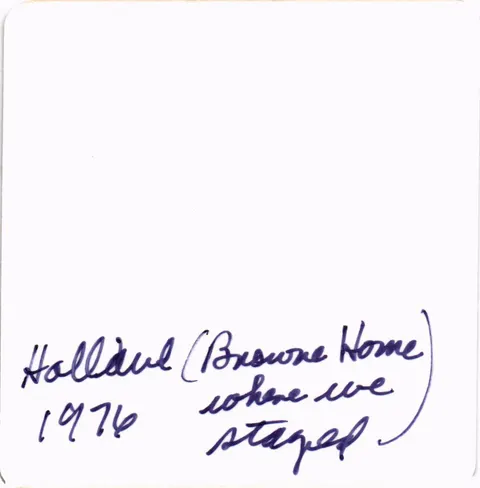 Holland (Browne Home
1976 where we
stayed)